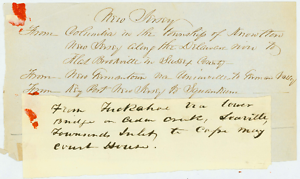 New Jersey
From Columbia in the Township of Knowlton
New Jersey along the Delaware river to
Flat Brookville in Sussex County
From New Germantown via Unionville to German Valley
From Key Port New Jersey to
From Tuckahoe via lower
Bridge on Cedar Creek, Seaville,
Townsends Inlet, to Cape May
Court House.